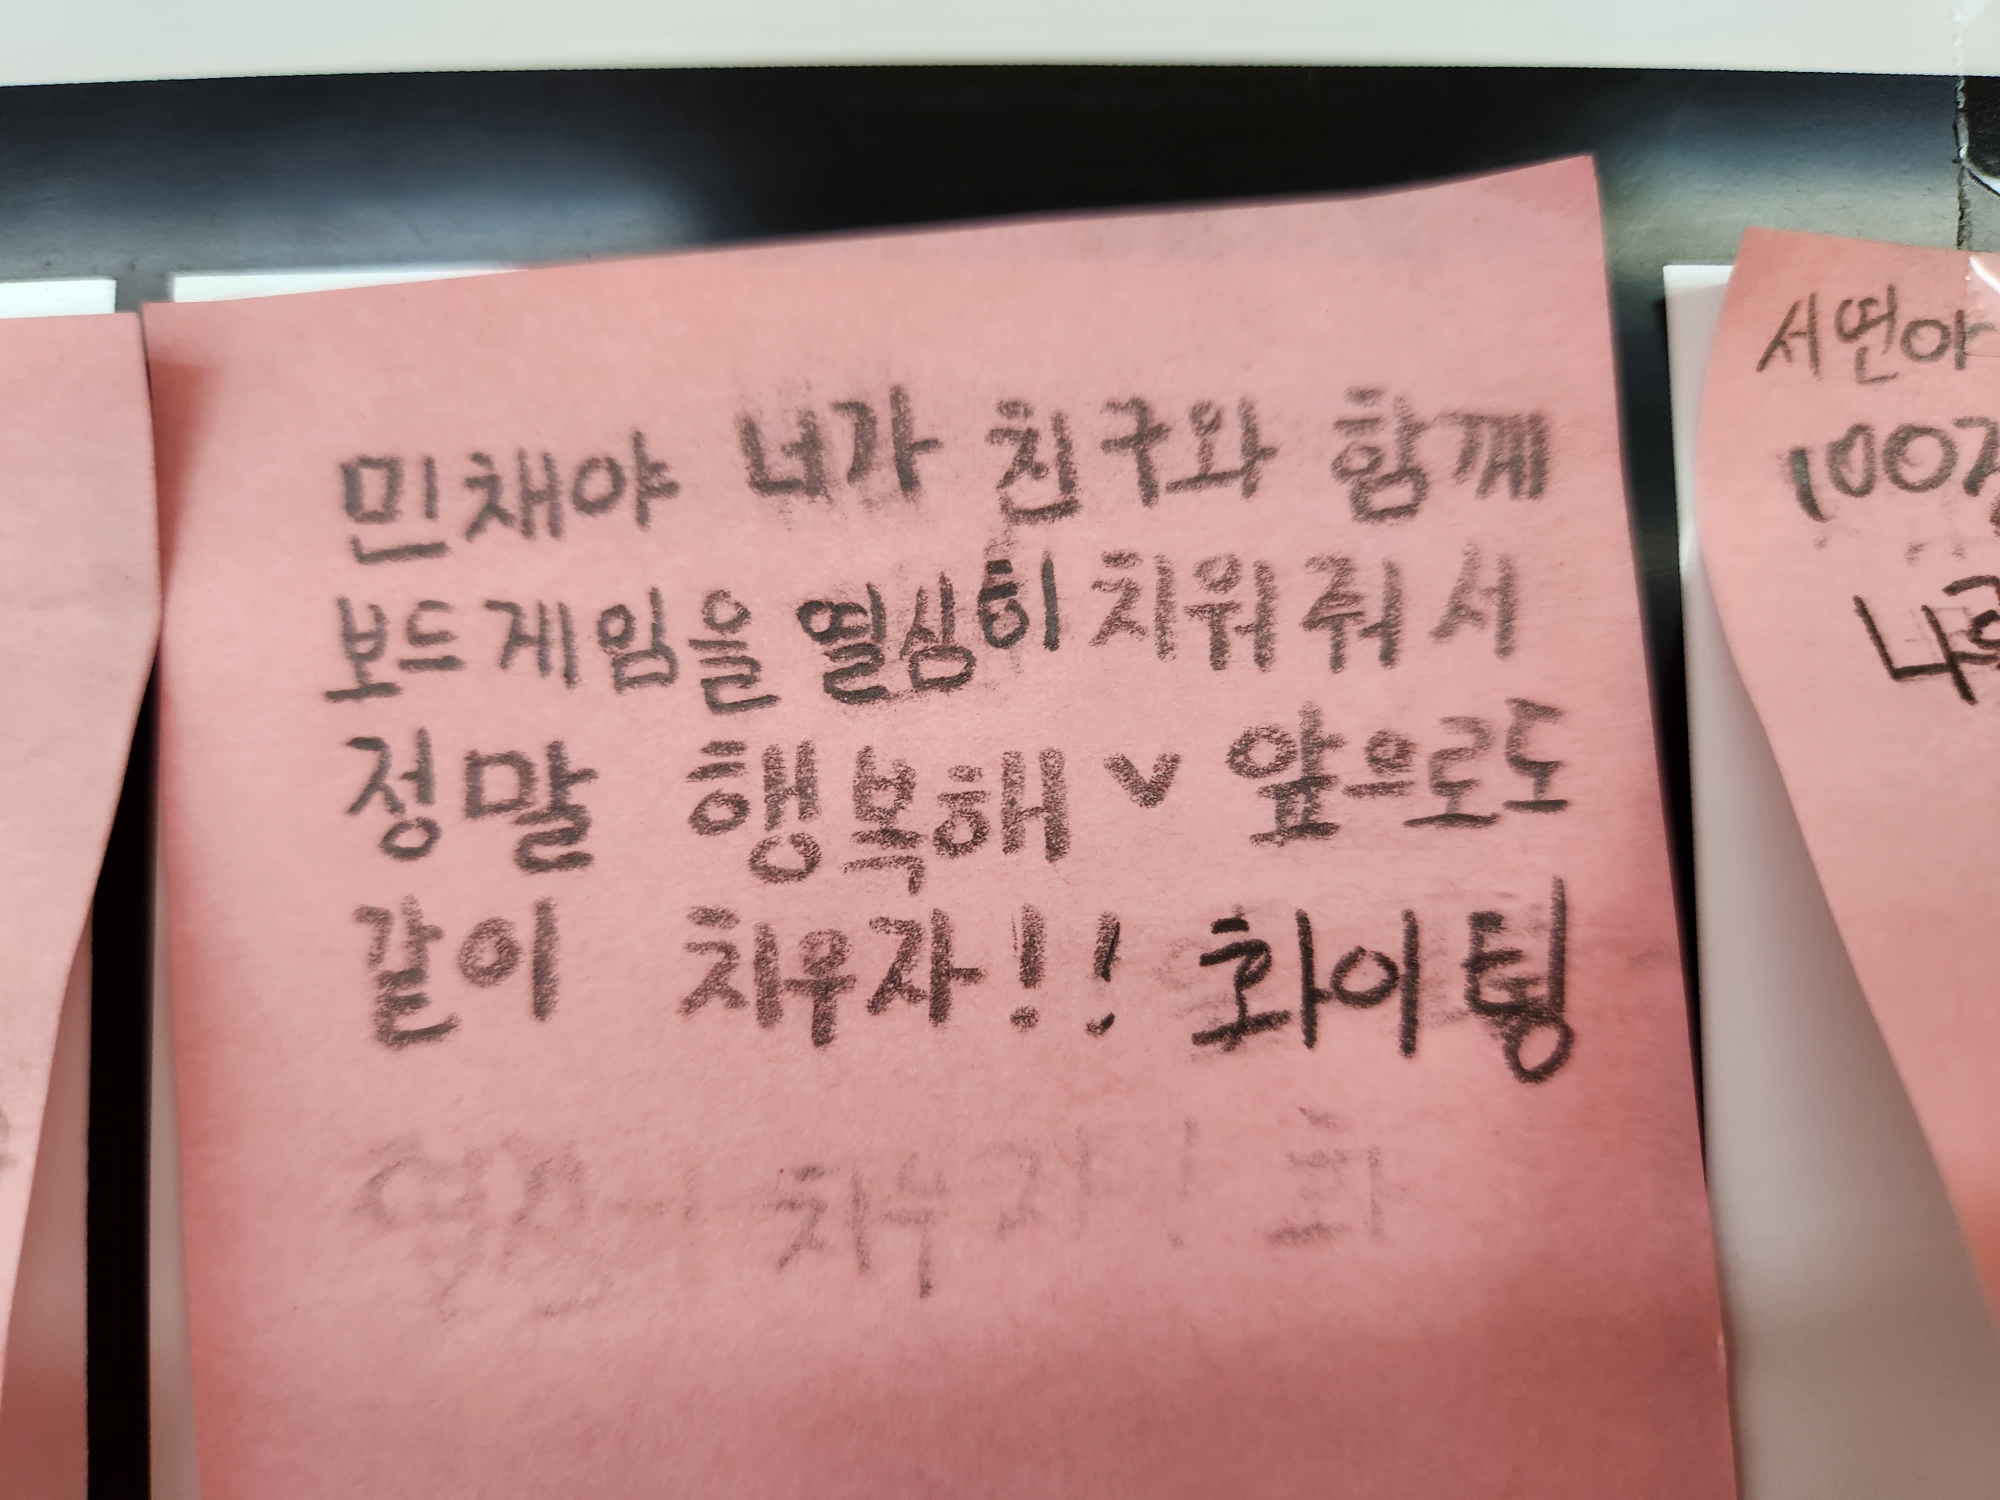 민채야 너가 친구와 함께
보드게임을 열심히 치워줘서
정말 행복해 ♥ 앞으로도
같이 치우자!! 화이팅
치우자! 화
서연아